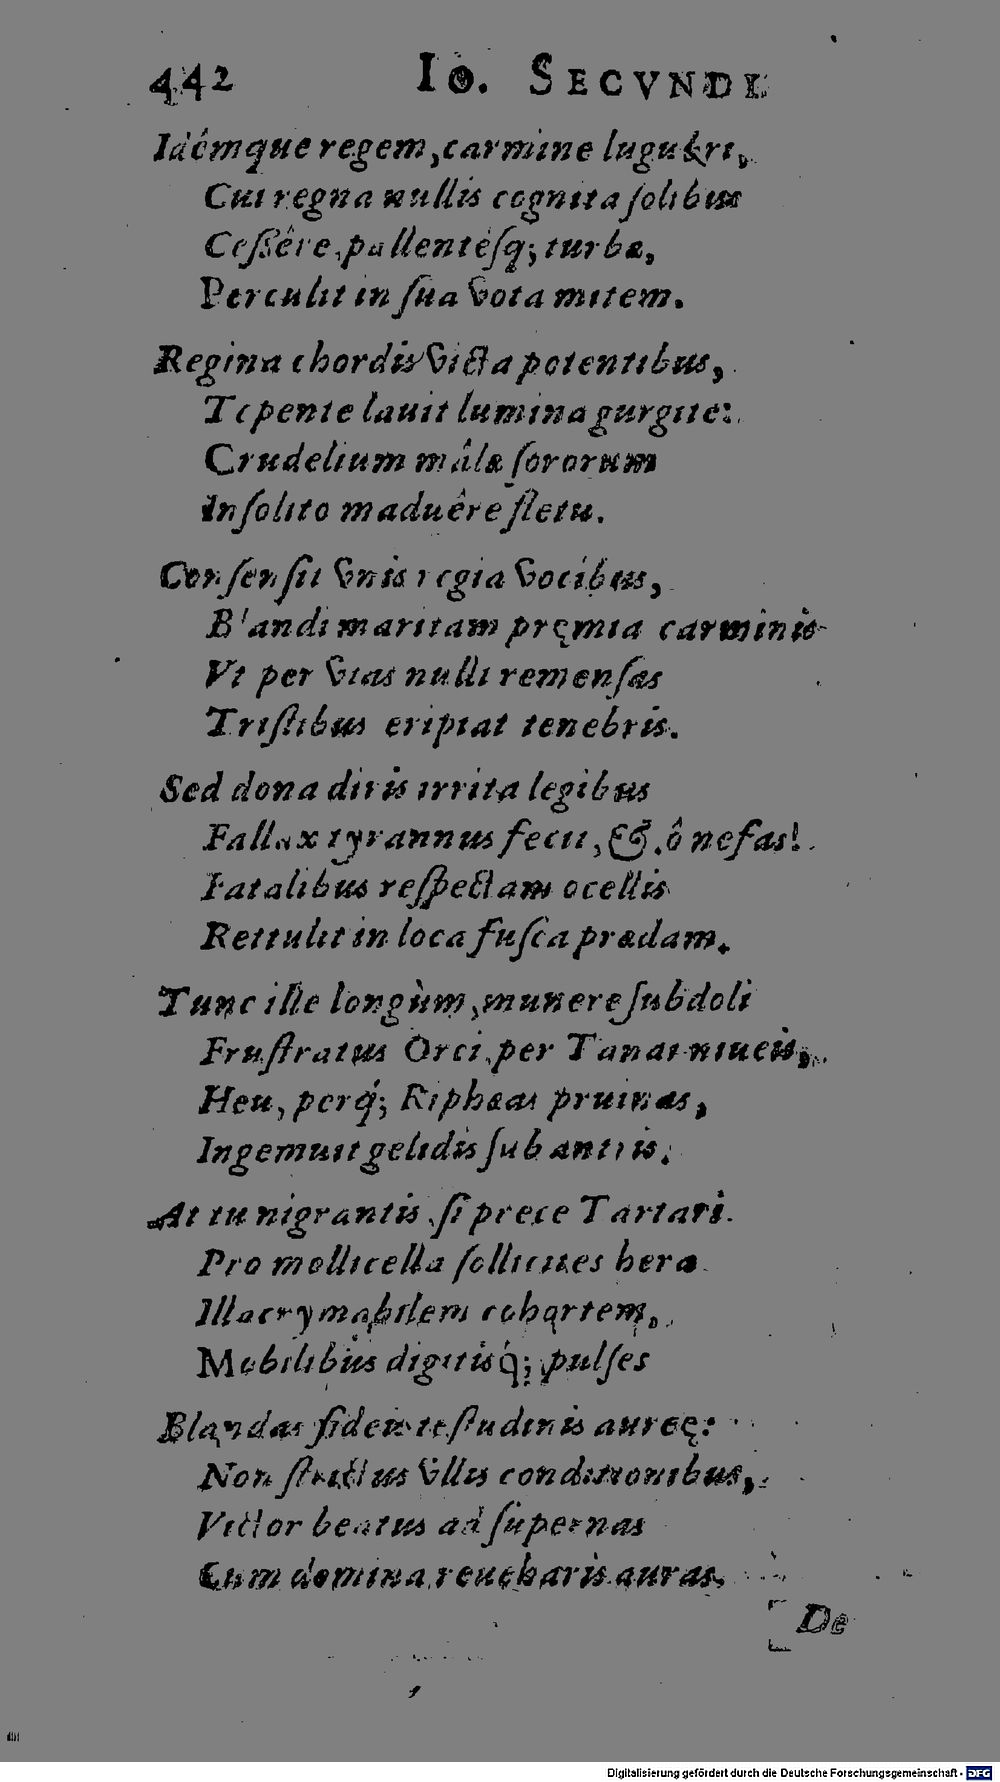 442 Io. SECVNDI
Idémque regem, carmine lugubri,
Cui regna nullis cognita ſolibus
Ceßêre, pallenteſq́; turbæ,
Perculit in ſua vota mitem.
Regina chordis victa potentibus,
Tepente lauit lumina gurgite:
Crudelium mâlæ ſororum
Inſolito maduêre fletu.
Conſenſit vnis regia vocibus,
Blandi maritam pręmia carminis
Vt per vias nulli remenſas
Triſtibus eripiat tenebris.
Sed dona diris irrita legibus
Fallax tyrannus fecit, & ô nefas!
Fatalibus reſpectam ocellis
Rettulit in loca fuſca prædam.
Tunc ille longùm, munere ſubdoli
Fruſtratus Orci, per Tanai niueis,
Heu, perq́; Riphæas pruinas,
Ingemuit gelidis ſub antris.
At tu nigrantis, ſi prece Tartari
Pro mollicella ſollicites hera
Illacrymabilem cohortem,
Mobilibus digitisq́; pulſes
Blandas fideis teſtudinis aureę:
Non ſtrictus vllis conditionibus,
Victor beatus ad ſupernas
Cum domina reueharis auras.
De
Digitalisierung gefördert durch die Deutsche Forschungsgemeinschaft - DFG